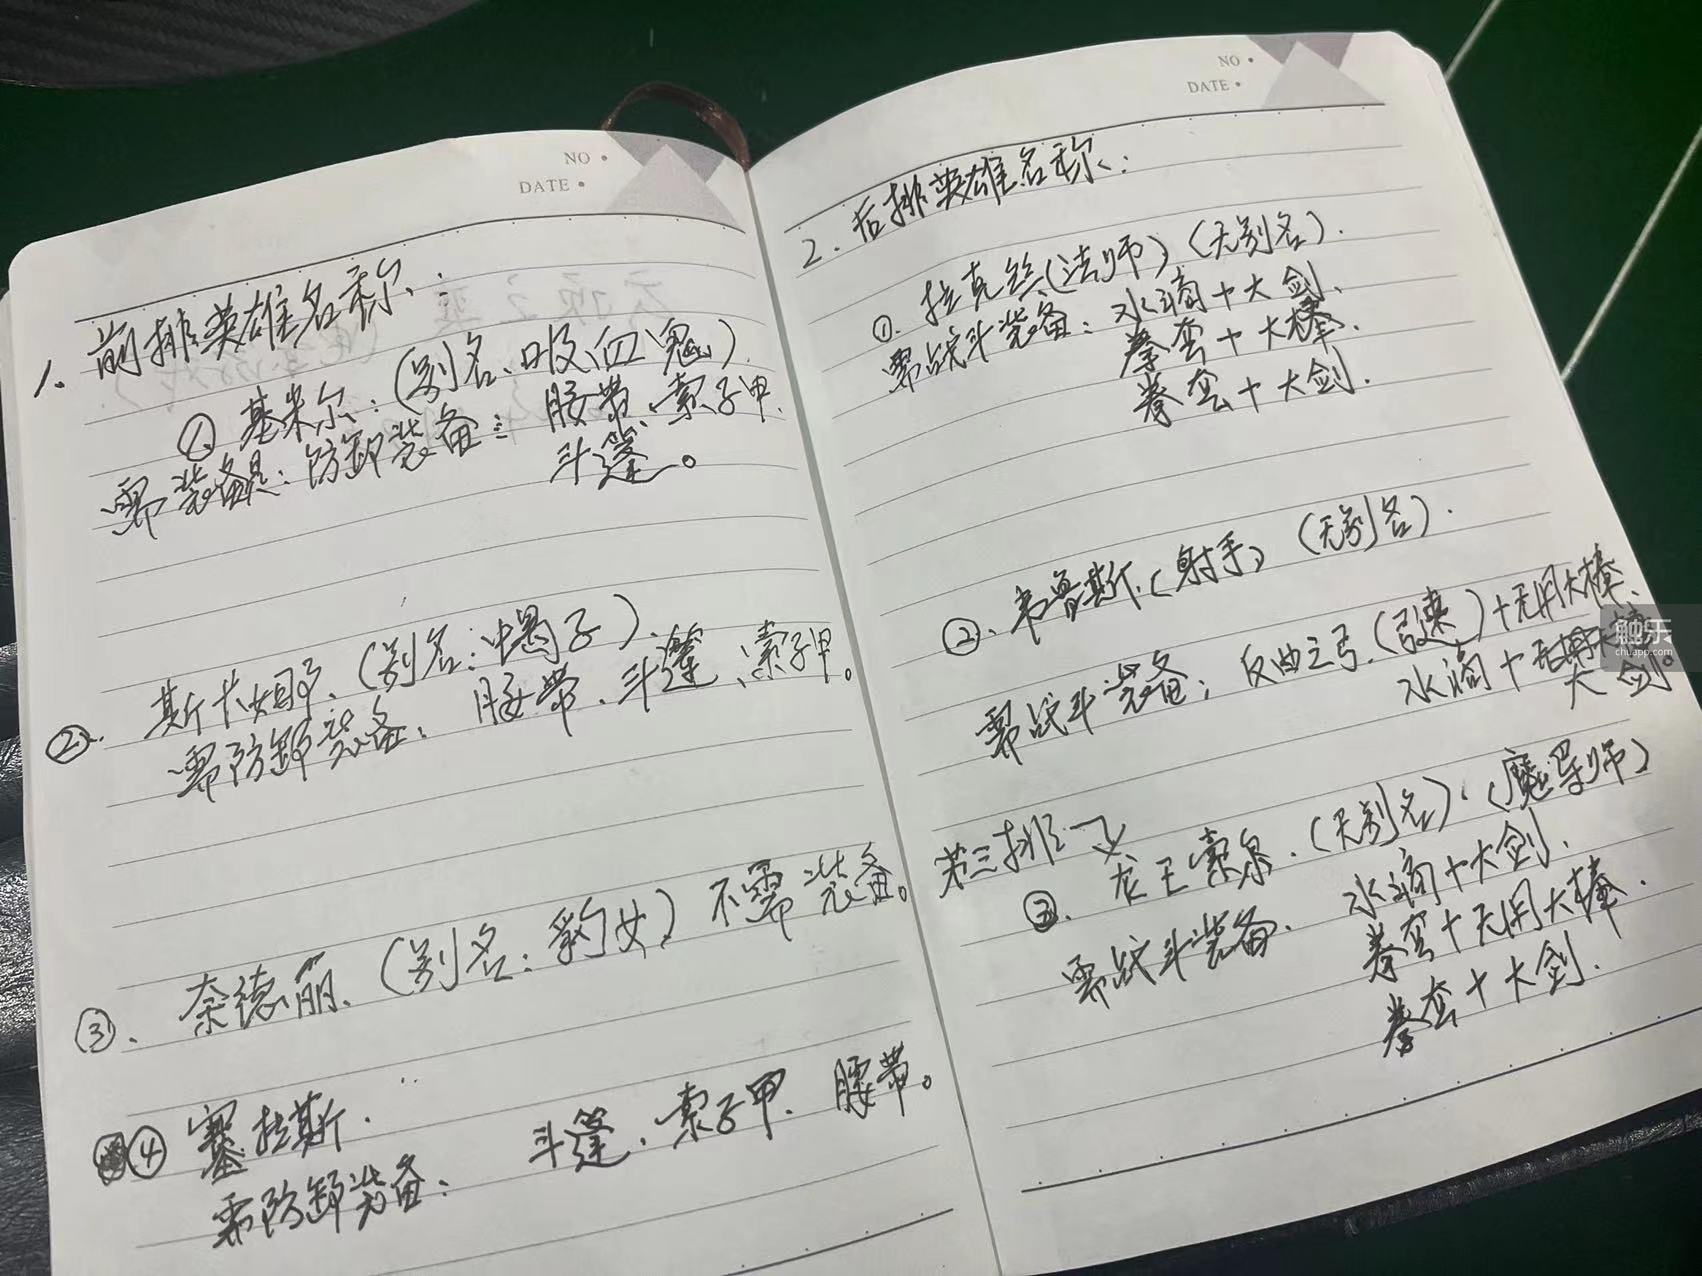 NO •
DATE •
1. 前排英雄名称:
① 基米尔:(别名.吸血鬼)
需装备是:防卸装备: 腰带、索子甲.
斗篷。
②. 斯卡姆.(别名:蝎子).
需防卸装备: 腰带.斗篷、索子甲。
③. 奈德丽.(别名:豹女) 不需装备。
④ 塞拉斯.
需防卸装备: 斗篷.索子甲.腰带。
NO •
DATE •
2. 后排英雄名称:
①. 拉克丝(法师)(无别名).
需战斗装备: 水滴+大剑.
拳套+大棒.
拳套+大剑.
②. 韦鲁斯.(射手)(无别名).
需战斗装备; 反曲之弓.(攻速)+无用大棒.
水滴+
大剑。
第三排
③. 龙王索尔.(无别名).(魔导师)
需战斗装备. 水滴+大剑.
拳套+无用大棒.
拳套+大剑.
触乐
chuapp.com